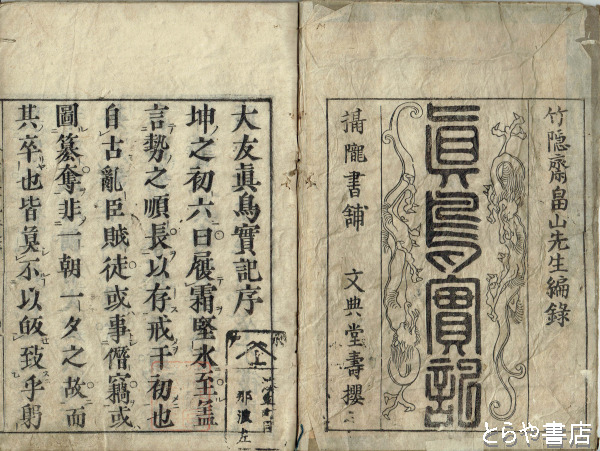 竹隱齋畠山先生編錄
眞鳥實記
摂隴書舖 文典堂壽櫻
大友眞鳥實記序
坤之初六曰履霜堅氷至蓋
言勢之順長以存戒于初也
自古亂臣賊徒或事僭竊或
圖簒奪非一朝一夕之故而
其卒也皆莫不以敀致乎躬
那波左
とらや書店